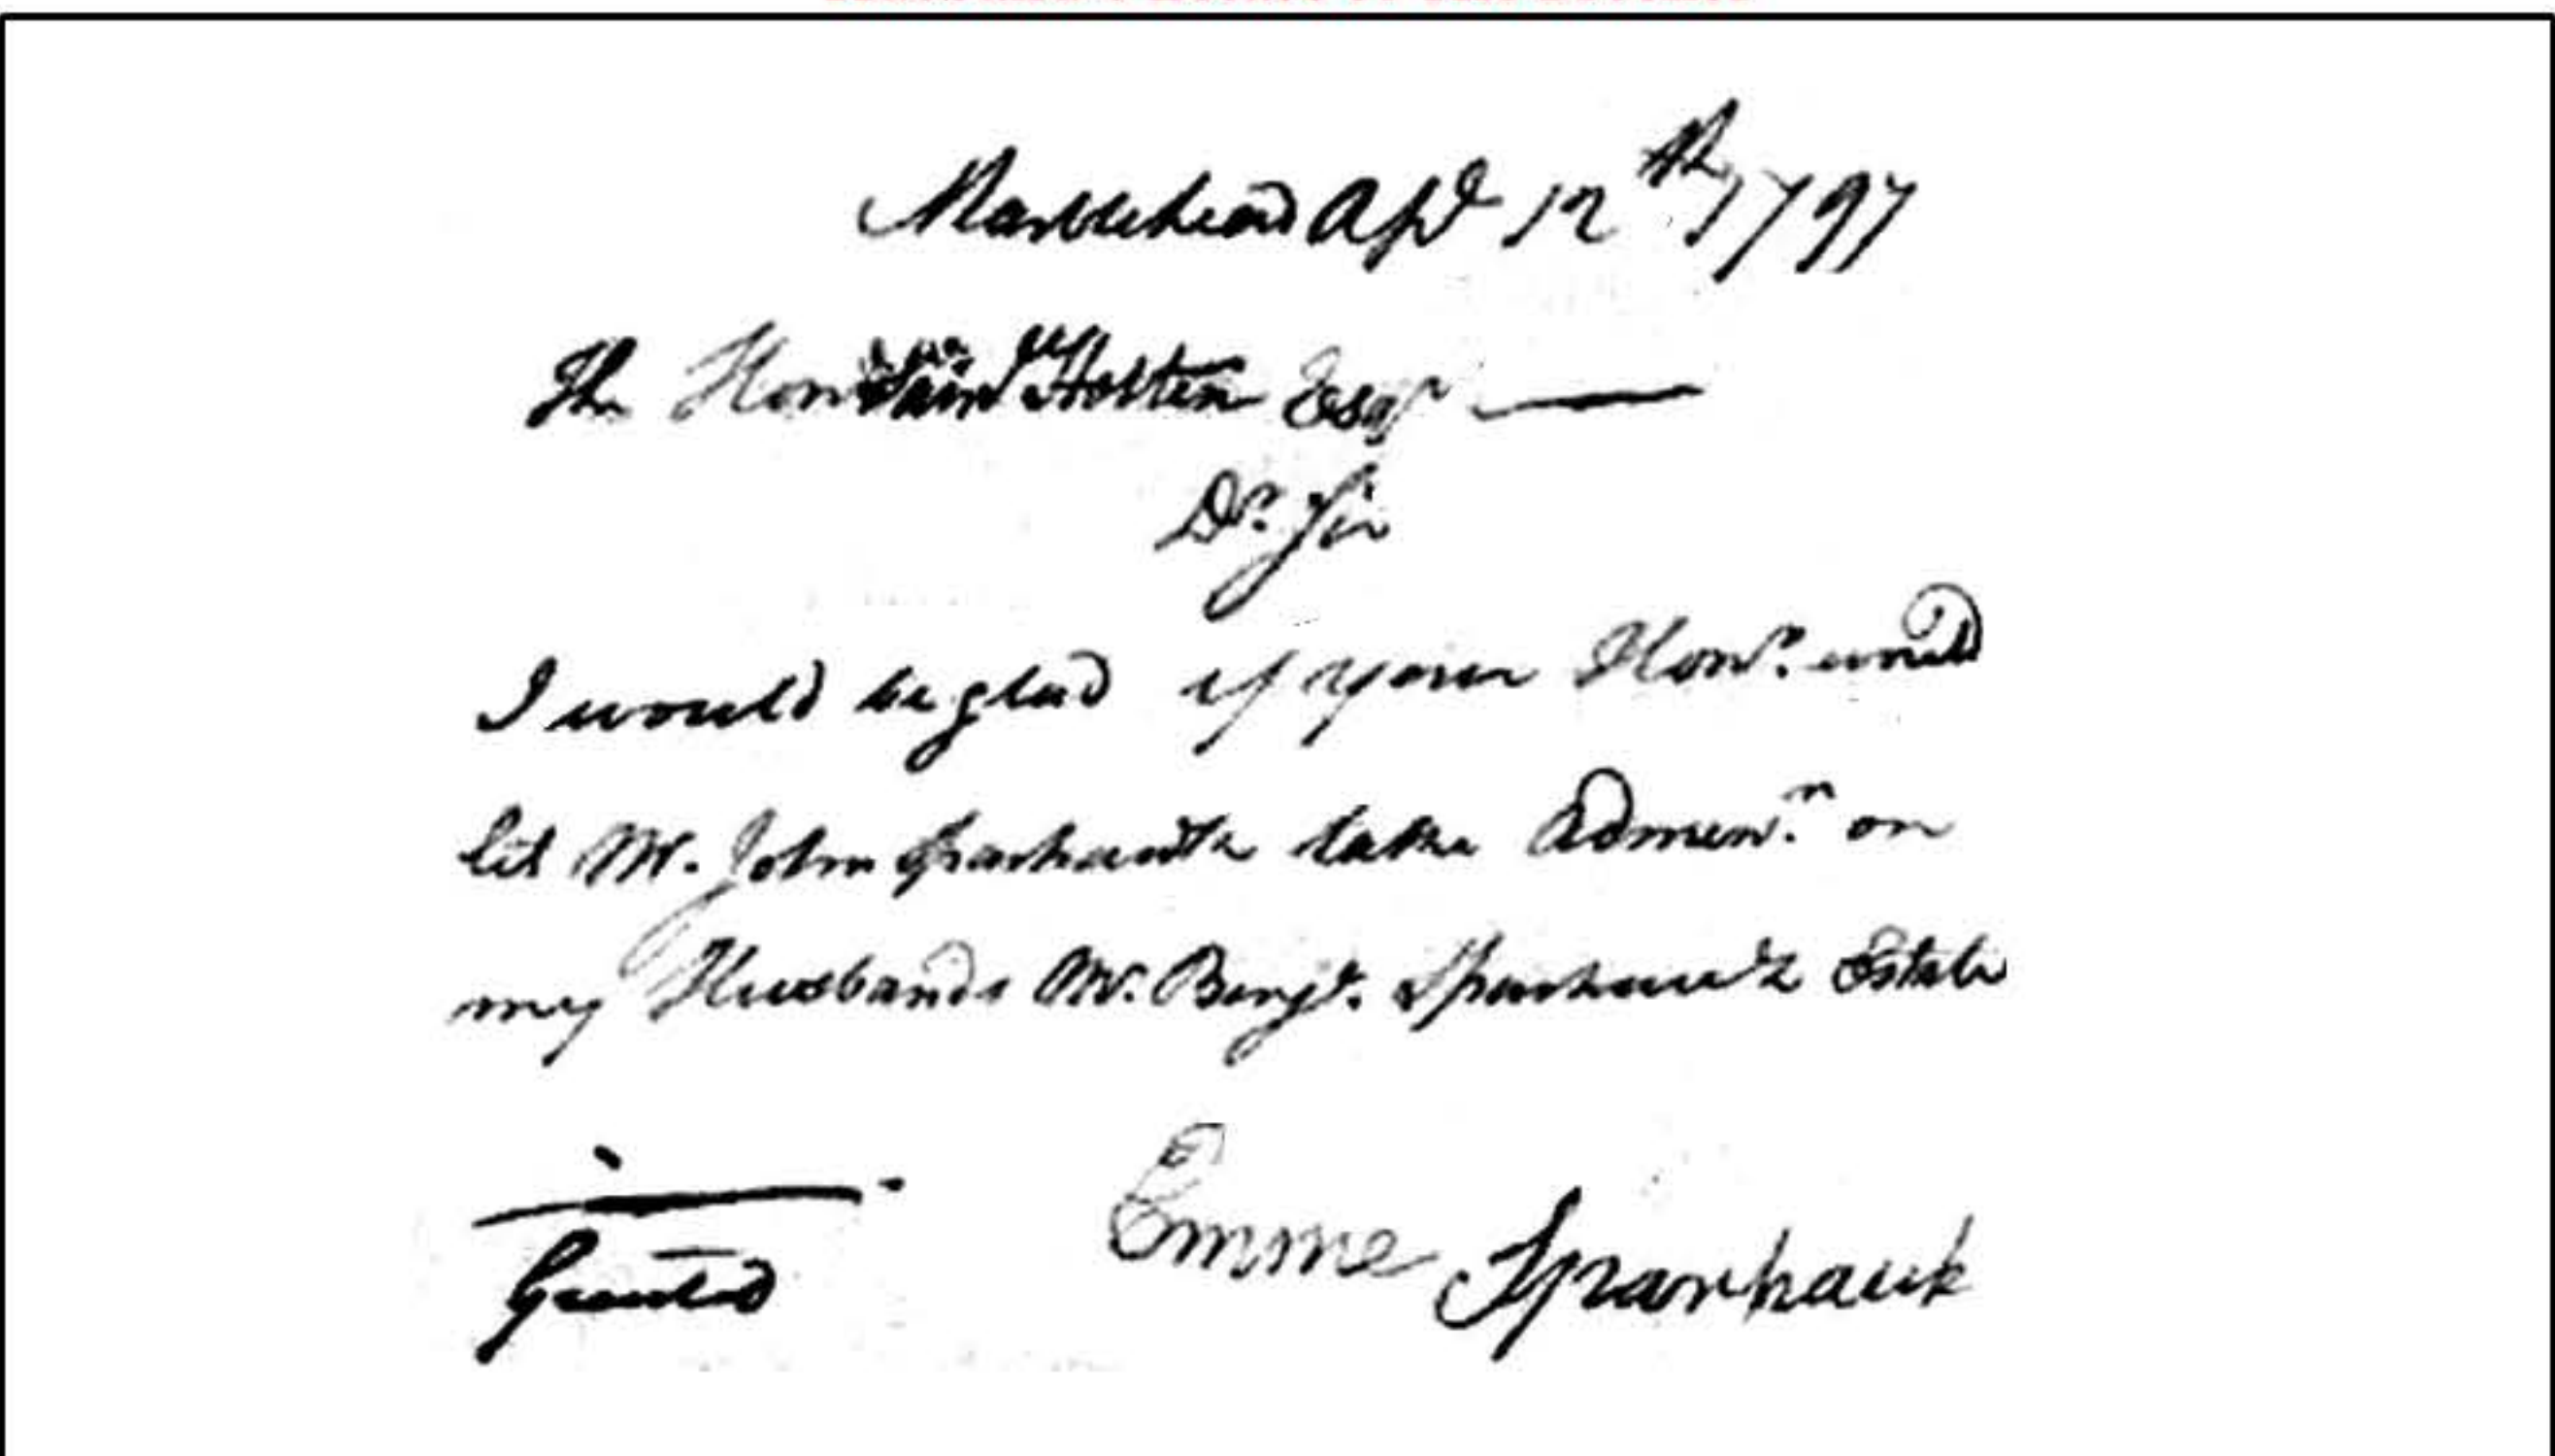 Marblehead Apl 12th 1797
The Honble Sam Holten Esqr
Dr. Sir
I would be glad if your Honr. would
let Mr. John Sparhawk take Admin.n on
my Husbands Mr. Benjn. Sparhawk Estate
Granted
Emme Sparhauk